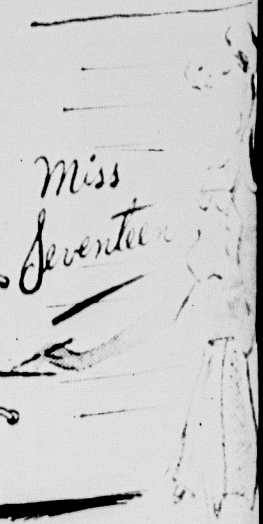 Miss
Seventeen